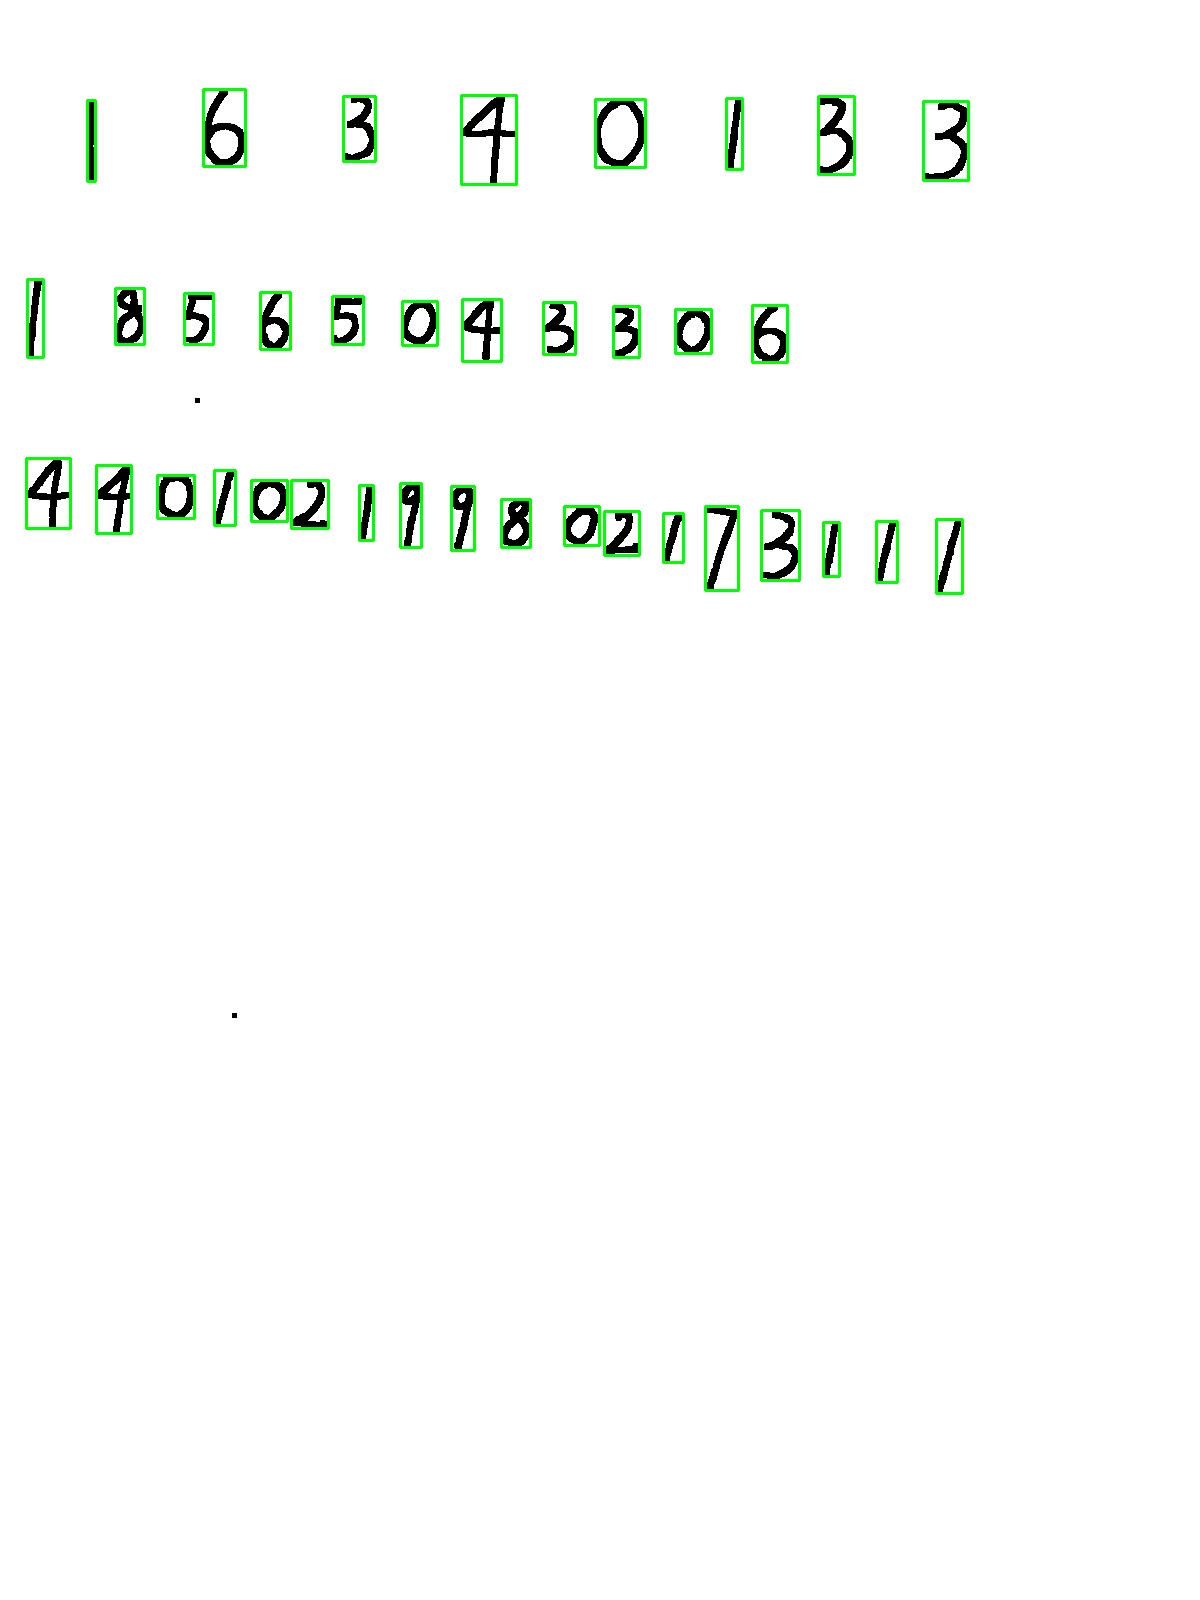 16340133
18565043306
440102199802173111